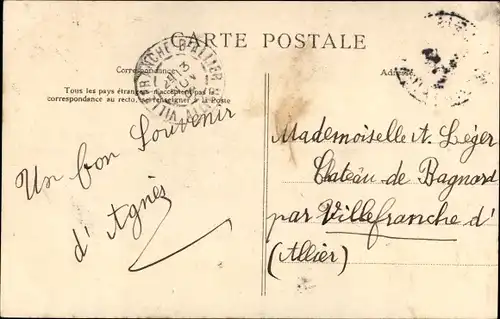 CARTE POSTALE
Correspondance
Tous les pays étrangers n'acceptent pas la
correspondance au recto, se renseigner à la Poste
Adresse
VILLEFRANCHE-D'ALLIER
Un bon Souvenir
d'Agnès
Mademoiselle A. Léger
Château de Bagnard
par Villefranche d'
(Allier)